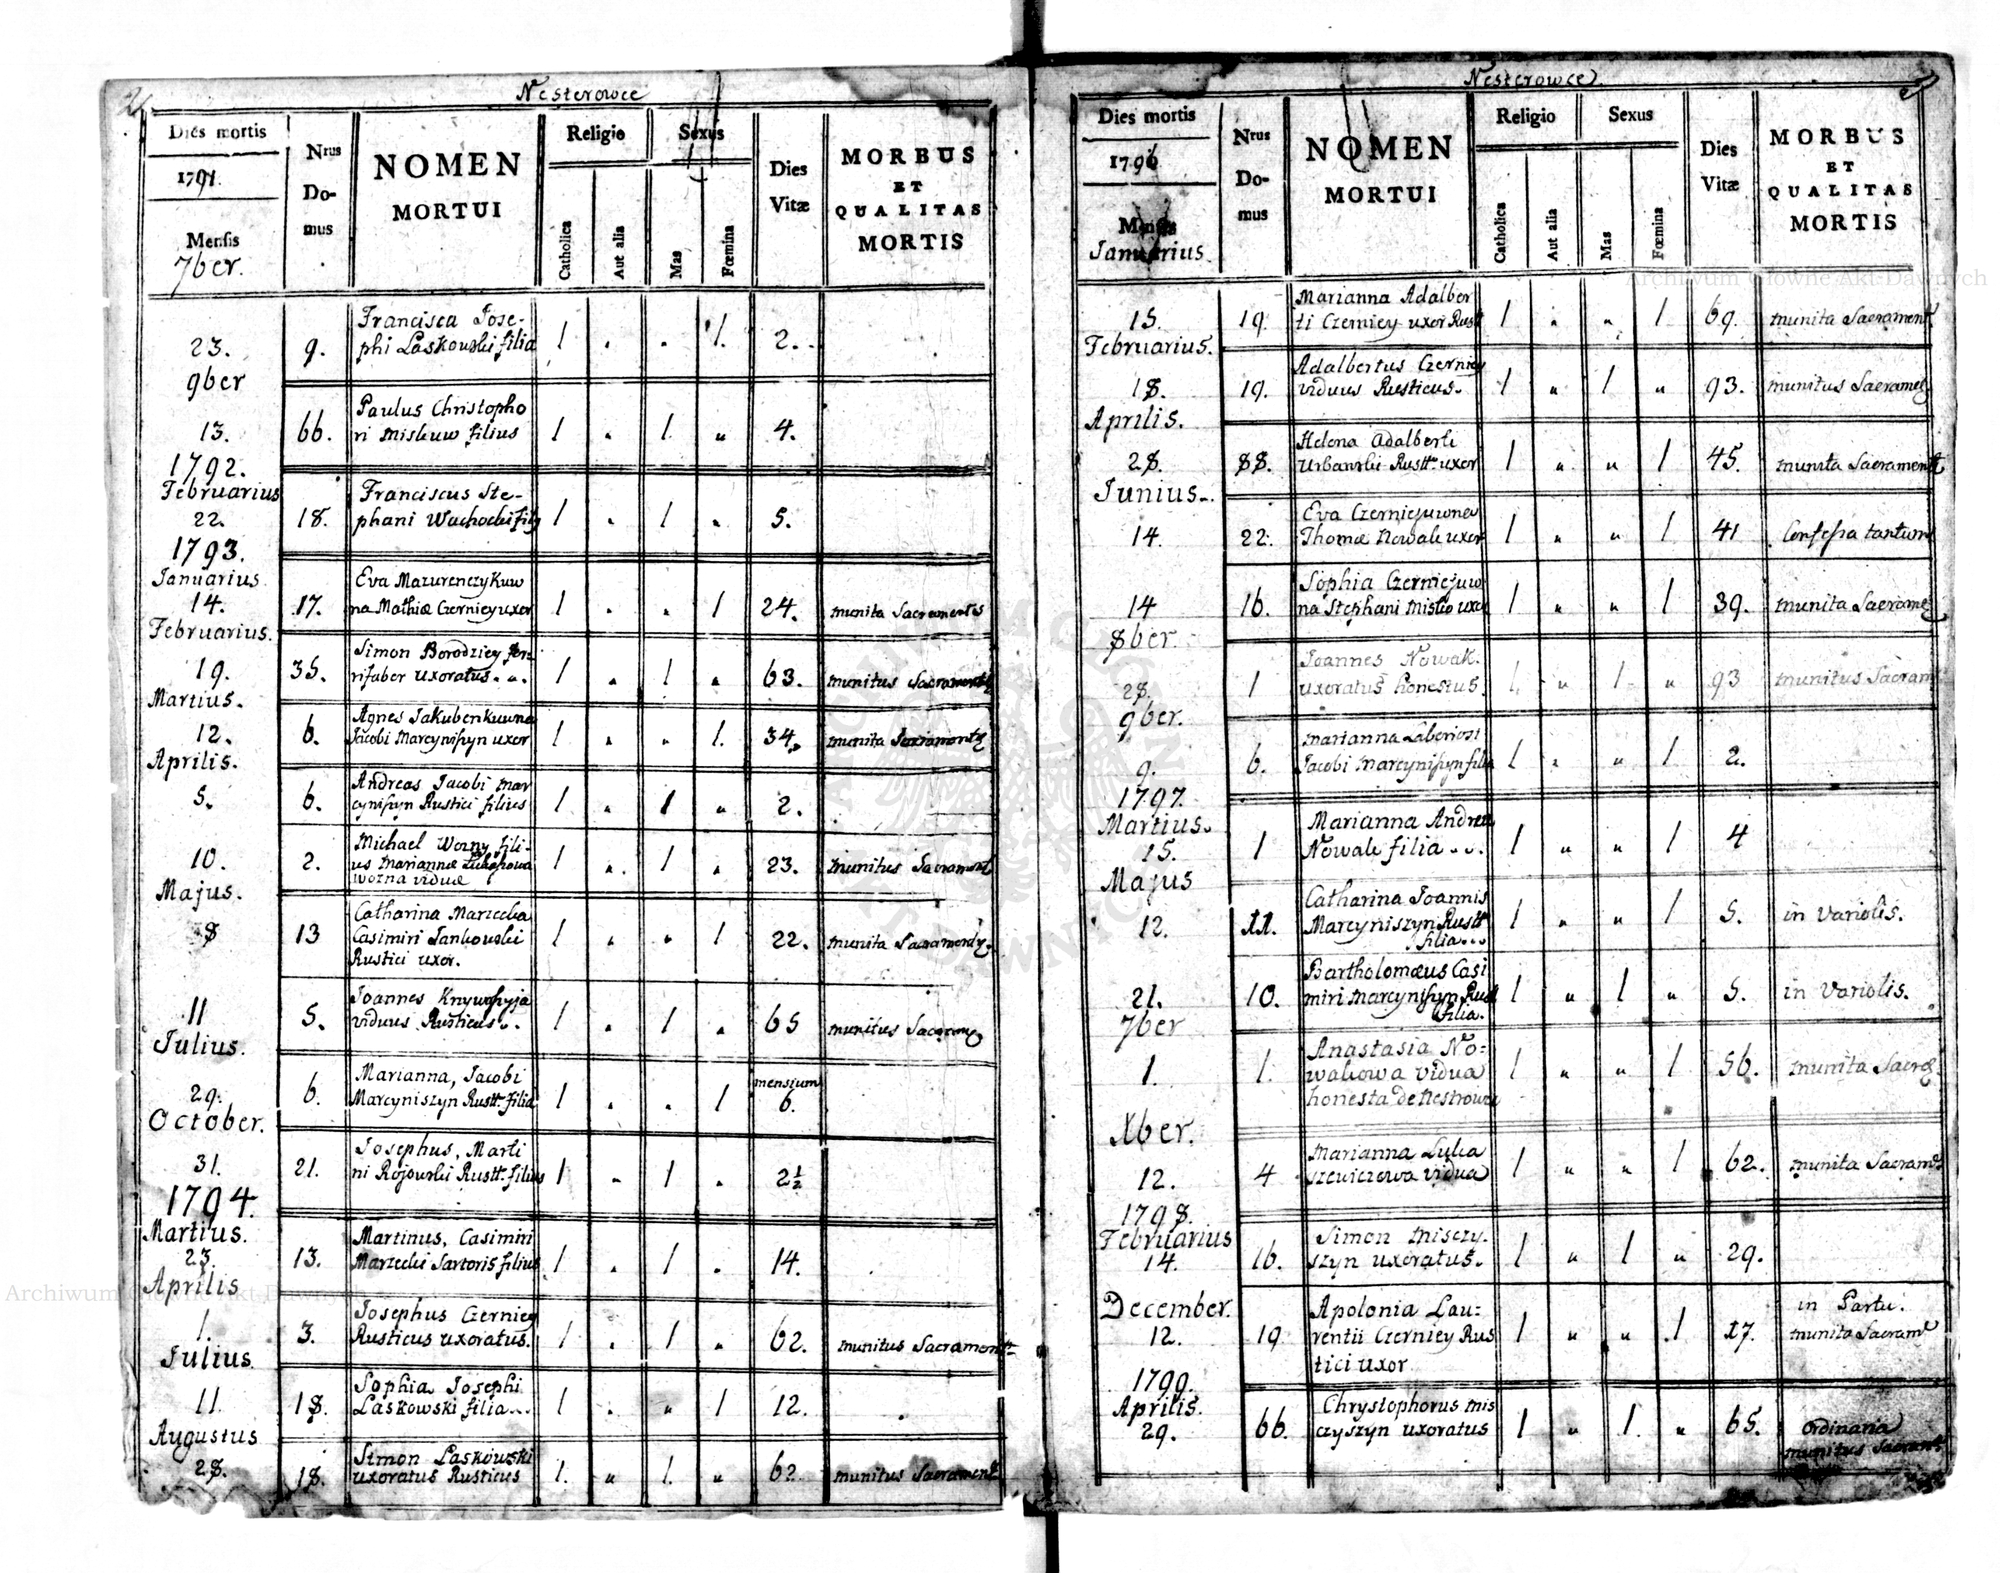 Nesterowce
Dies mortis
1791.
Mensis
7ber.
Nrus
Do-
mus
NOMEN
MORTUI
Religio
Catholica
Aut alia
Sexus
Mas
Fœmina
Dies
Vitæ
MORBUS
ET
QUALITAS
MORTIS
23. 9. Francisca Jose-
phi Laskowski filia 1 . . 1. 2.
9ber
13. 66. Paulus Christopho
ri Miskuw filius 1 . 1. " 4.
1792.
Februarius
22. 18. Franciscus Ste-
phani Wachocki fily 1 . 1 . 5.
1793.
Januarius
14. 17. Eva Mazurenczykuw
na Mathiæ Czerniey uxor 1 . . 1 24. munita Sacramentis
Februarius.
19. 35. Simon Borodziey
rifaber uxoratus. 1 . 1 . 63. munitus
Martius.
12. 6. Agnes Jakubenkuwna
Jacobi Marcyniszyn uxor 1 . . 1. 34. munita
Aprilis.
5. 6. Andreas Jacobi Mar
cyniszyn Rustici filius 1 . 1 . 2.
10. 2. Michael Wozny fili-
us Mariannæ
wozna viduæ 1 . 1 . 23. munitus Sacrament
Majus.
8 13 Catharina Marzecka
Casimiri Jankowski
Rustici uxor. 1 . . 1 22. munita
11 5. Joannes
viduus Rusticus. 1 . 1 . 65 munitus
Julius.
29. 6. Marianna, Jacobi
Marcyniszyn Rustt. filia 1 . . 1 mensium
6.
October.
31. 21. Josephus, Marti
ni Rojowski Rustt. filius 1 . 1 . 2½
1794.
Martius.
23. 13. Martinus, Casimiri
Marzecki Sartoris filius 1 . 1 . 14.
Aprilis
1. 3. Josephus Czerniey
Rusticus uxoratus. 1 . 1 . 62. munitus
Julius.
11 18. Sophia Josephi
Laskowski filia 1 . " 1 12.
Augustus
28. 18. Simon Laskowski
uxoratus Rusticus 1. " 1. " 62 munitus Sacrament
Nesterowce
Dies mortis
1796
Mensis
Januarius.
Nrus
Do-
mus
NOMEN
MORTUI
Religio
Catholica
Aut alia
Sexus
Mas
Fœmina
Dies
Vitæ
MORBUS
ET
QUALITAS
MORTIS
15. 19. Marianna Adalber
ti Czerniey uxor Rustt 1 . " 1 69. munita Sacrament.
Februarius.
18. 19. Adalbertus Czerniey
viduus Rusticus. 1 " 1 " 93. munitus
Aprilis.
28. 88. Helena Adalberti
Urbanski Rustt. uxor 1 " " 1 45. munita
Junius.
14. 22. Eva Czerniejuwna
Thomæ Nowak uxor 1 " " 1 41 Confessa tantum
14 16. Sophia Czerniejuw
na Stephani Misko uxor 1 " " 1 39. munita
8ber
28. 1 Joannes Nowak.
uxoratus honestus. 1. " 1 " 93 munitus
9ber.
9. 6. Marianna
Jacobi Marcyniszyn filia 1 . " 1 2.
1797.
Martius.
15. 1 Marianna Andreæ
Nowak filia 1 " " 1 4
Majus
12. 11. Catharina Joannis
Marcyniszyn Rustt
filia 1 " " 1 5. in Variolis.
21. 10. Bartholomæus Casi
miri Marcyniszyn Rust
filia. 1 " 1 " 5. in Variolis.
7ber
1. 1. Anastasia No=
wakowa vidua
honesta de 1 " " 1 56. munita
Xber.
12. 4 Marianna Luka
szewiczowa vidua 1 " " 1 62. munita Sacram
1798.
Februarius
14. 16. Simon Misczy-
szyn uxoratus. 1 " 1 " 29.
December.
12. 19 Apolonia Lau=
rentii Czerniey Rus
tici uxor 1 " " 1 27. in Partu.
munita Sacram
1799.
Aprilis.
29. 66. Chrystophorus Mis
czyszyn uxoratus 1 " 1. " 65. Ordinaria
munitus
Archiwum Główne Akt Dawnych
Archiwum Główne Akt Dawnych